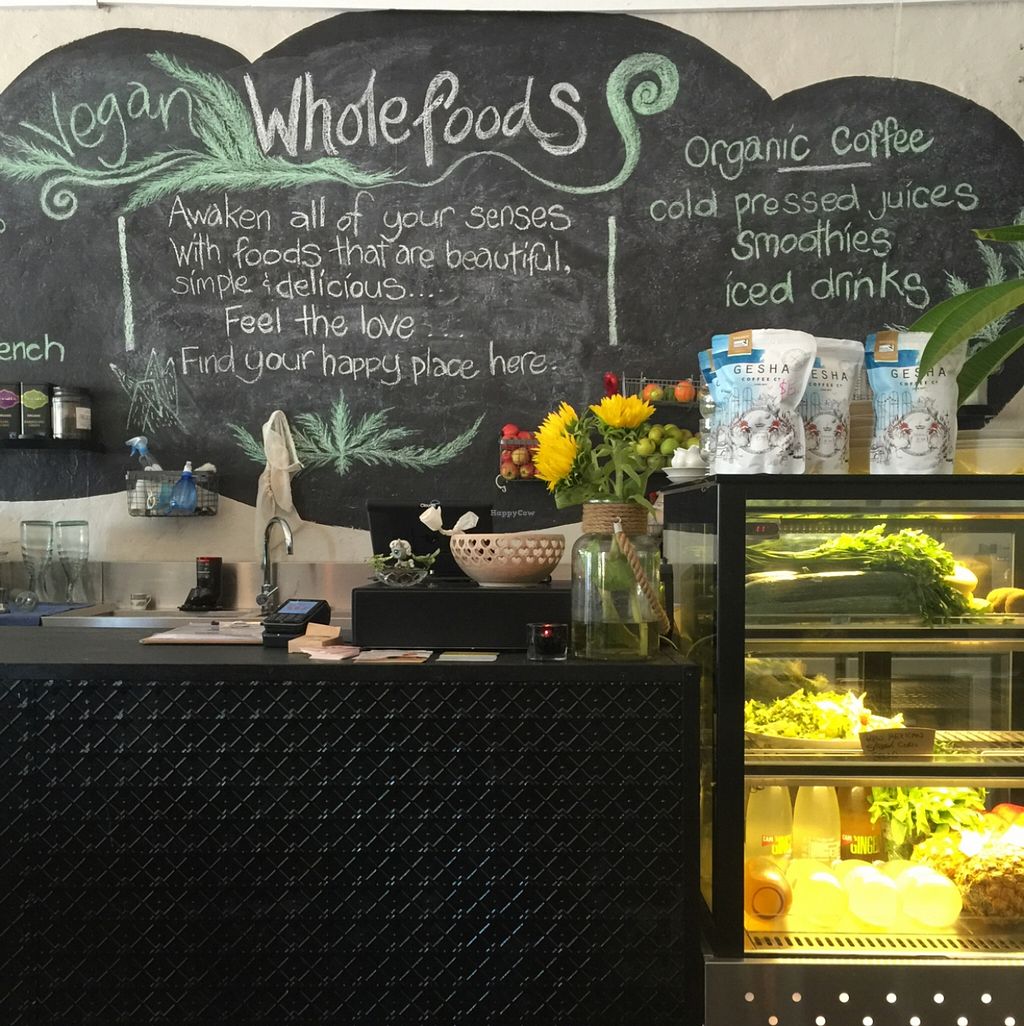 Vegan Wholefoods
Awaken all of your senses
with foods that are beautiful,
simple & delicious...
Feel the love...
Find your happy place here.
Organic Coffee
cold pressed juices
smoothies
iced drinks
ench
GESHA
COFFEE Co
GESHA
COFFEE Co
GESHA
COFFEE Co
HappyCow
GINGE